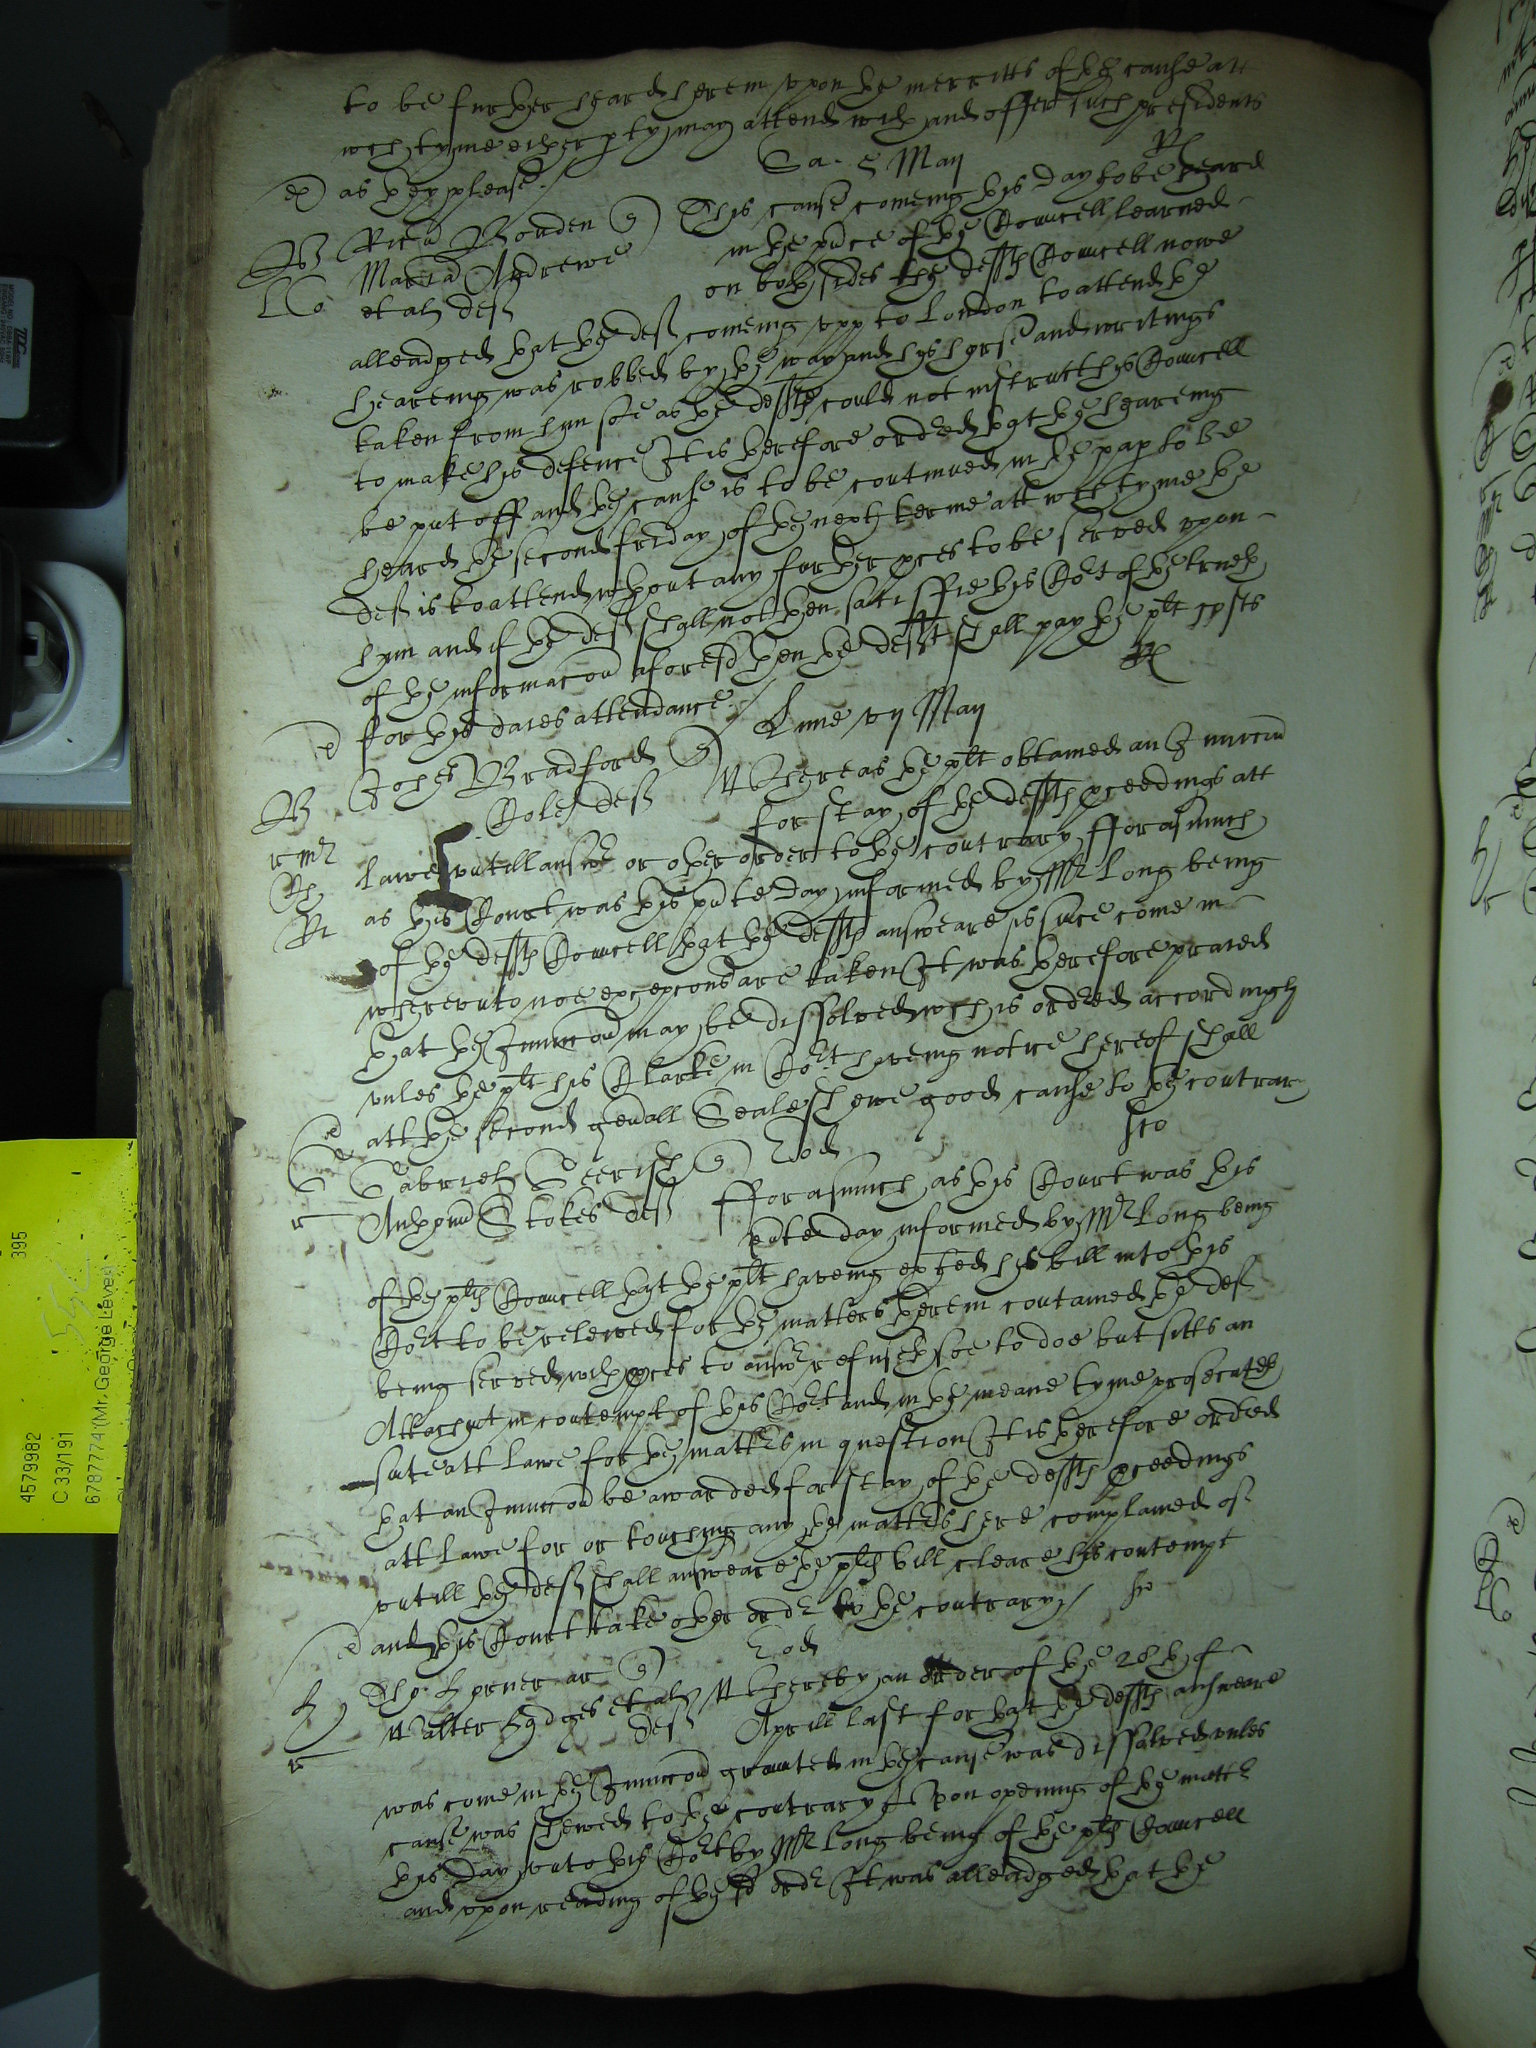 to be further heard herein upon the merritts of the cause att
wch tyme either pty may attend with and offer such presidents
ex as they please./ Sa. 5 May Rl
B Ricus Bowden q This cause comeing this day to be heard
Maria Andrewe in the pnce of the Councell learned
LCo et alii deft on both sides the defts Councell nowe
alleadged that the deft comeing upp to London to attend the
heareing was robbed by the way and his horse and writings
taken from him soe as the defts could not instruct his Councell
to make his defence It is therefore ordred that the heareing
be put off and the cause is to be continued in the pap to be
heard the second friday of the next terme att wch tyme the
deft is to attend without any further pces to be served upon
him and if the deft shall not then satisffie this Cort of the trueth
of the informacon aforesd then the deft shall pay the plt costs
ex for this daies attendance./ Lune vij May Rl
B Johes Bradford q Whereas the plt obtained an Iniuncon
Cole deft for stay of the defts pceedings att
r mr Lawe untill answr or other order to the contrary Fforasmuch
Ry
Rl as this Court was this pnte day informed by Mr Long being
of the defts Councell that the defts answeare is since come in
whereunto noe excepcons are taken It was therefore praied
that the Iniuncon may be dissolved wch is ordred accordingly
unles the plt his Clarke in Cort haveing notice hereof shall
ex att the second genall Seale shewe good cause to the contrary
G Gabriell Geerish q Eod Sco
r Anthonius Stokes deft Fforasmuch as this Court was this
pnte day informed by Mr Long being
of the plts Councell that the plt haveing exhed his bill into this
Cort to be releived for the matters therein contained the deft
being served with pces to answr refuseth soe to doe but sitts an
Attachmt in contempt of this Cort and in the meane tyme prosecuteth
suite att Lawe for the matters in question It is therefore ordred
that an Iniuncon be awarded for stay of the defts pceedings
att lawe for or touching any the matters here complained of
untill the deft shall answeare the plts bill cleare his contempt
ex and this Court take other ordr to the contrary/ Sco
H Tho: Horner ar q Eod
Walter Hodges et alii Whereby an order of the 28th of
r deft Aprill last for that the defts answeare
was come in the Iniuncon graunted in the cause was dissolved unles
cause was shewed to the contrary Upon opening of the mattr
this day unto this Cort by Mr Long being of the plts Councell
and upon reading of the sd ordr It was alleadged that the
4579982
C 33/191
6787774 (Mr. George Leven
395